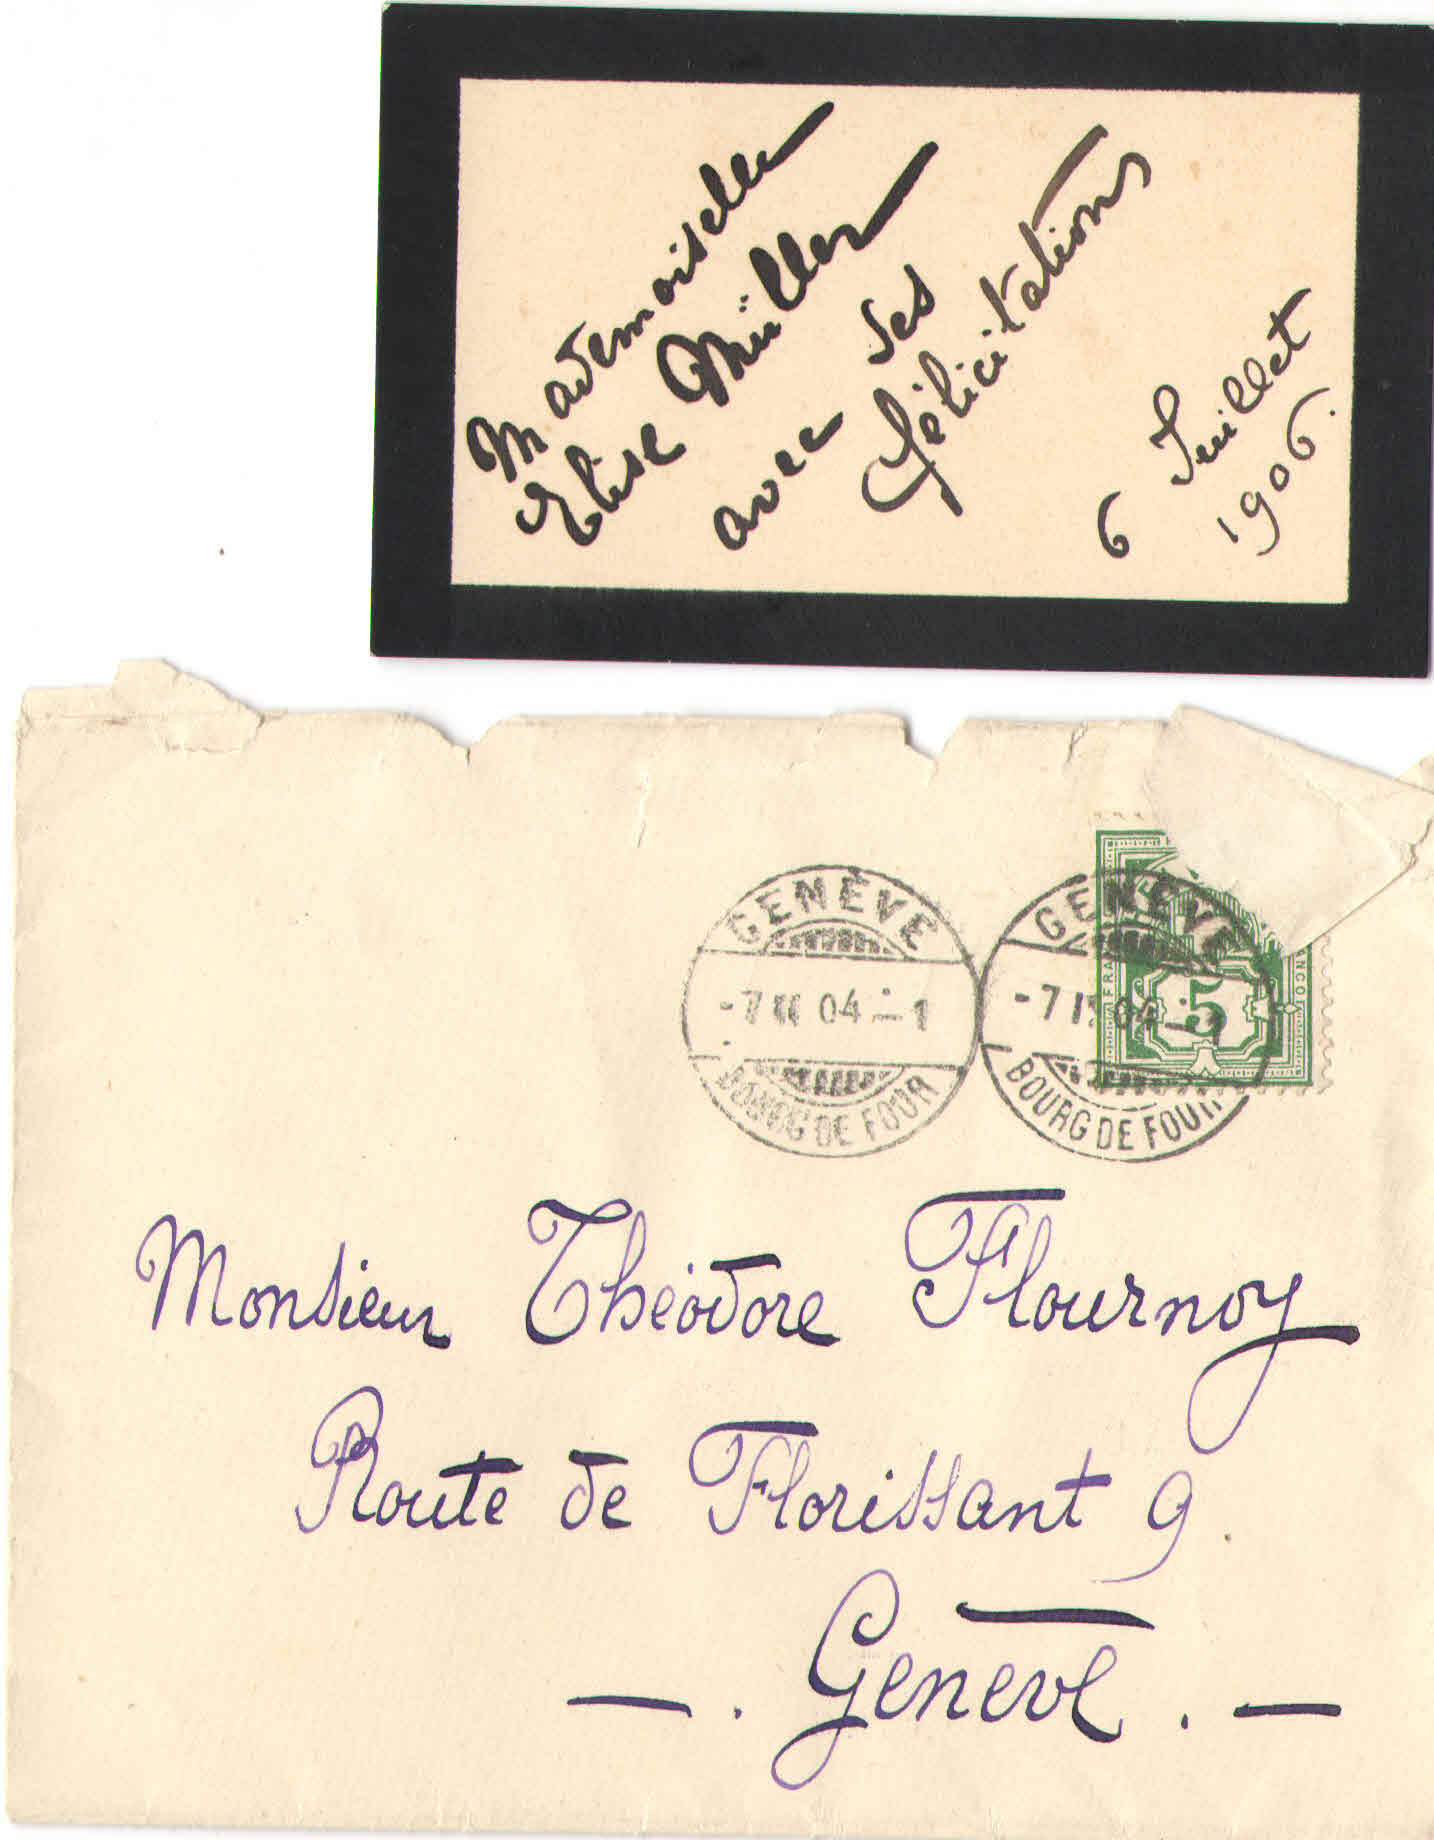 Mademoiselle
Elise Müller
avec ses
félicitations
6 Juillet
1906.
GENÈVE
-7 II 04 -1
BOURG DE FOUR
GENÈVE
-7 04
BOURG DE FOUR
FRANCO
5
Monsieur Théodore Flournoy
Route de Florissant 9.
- . Genève . -